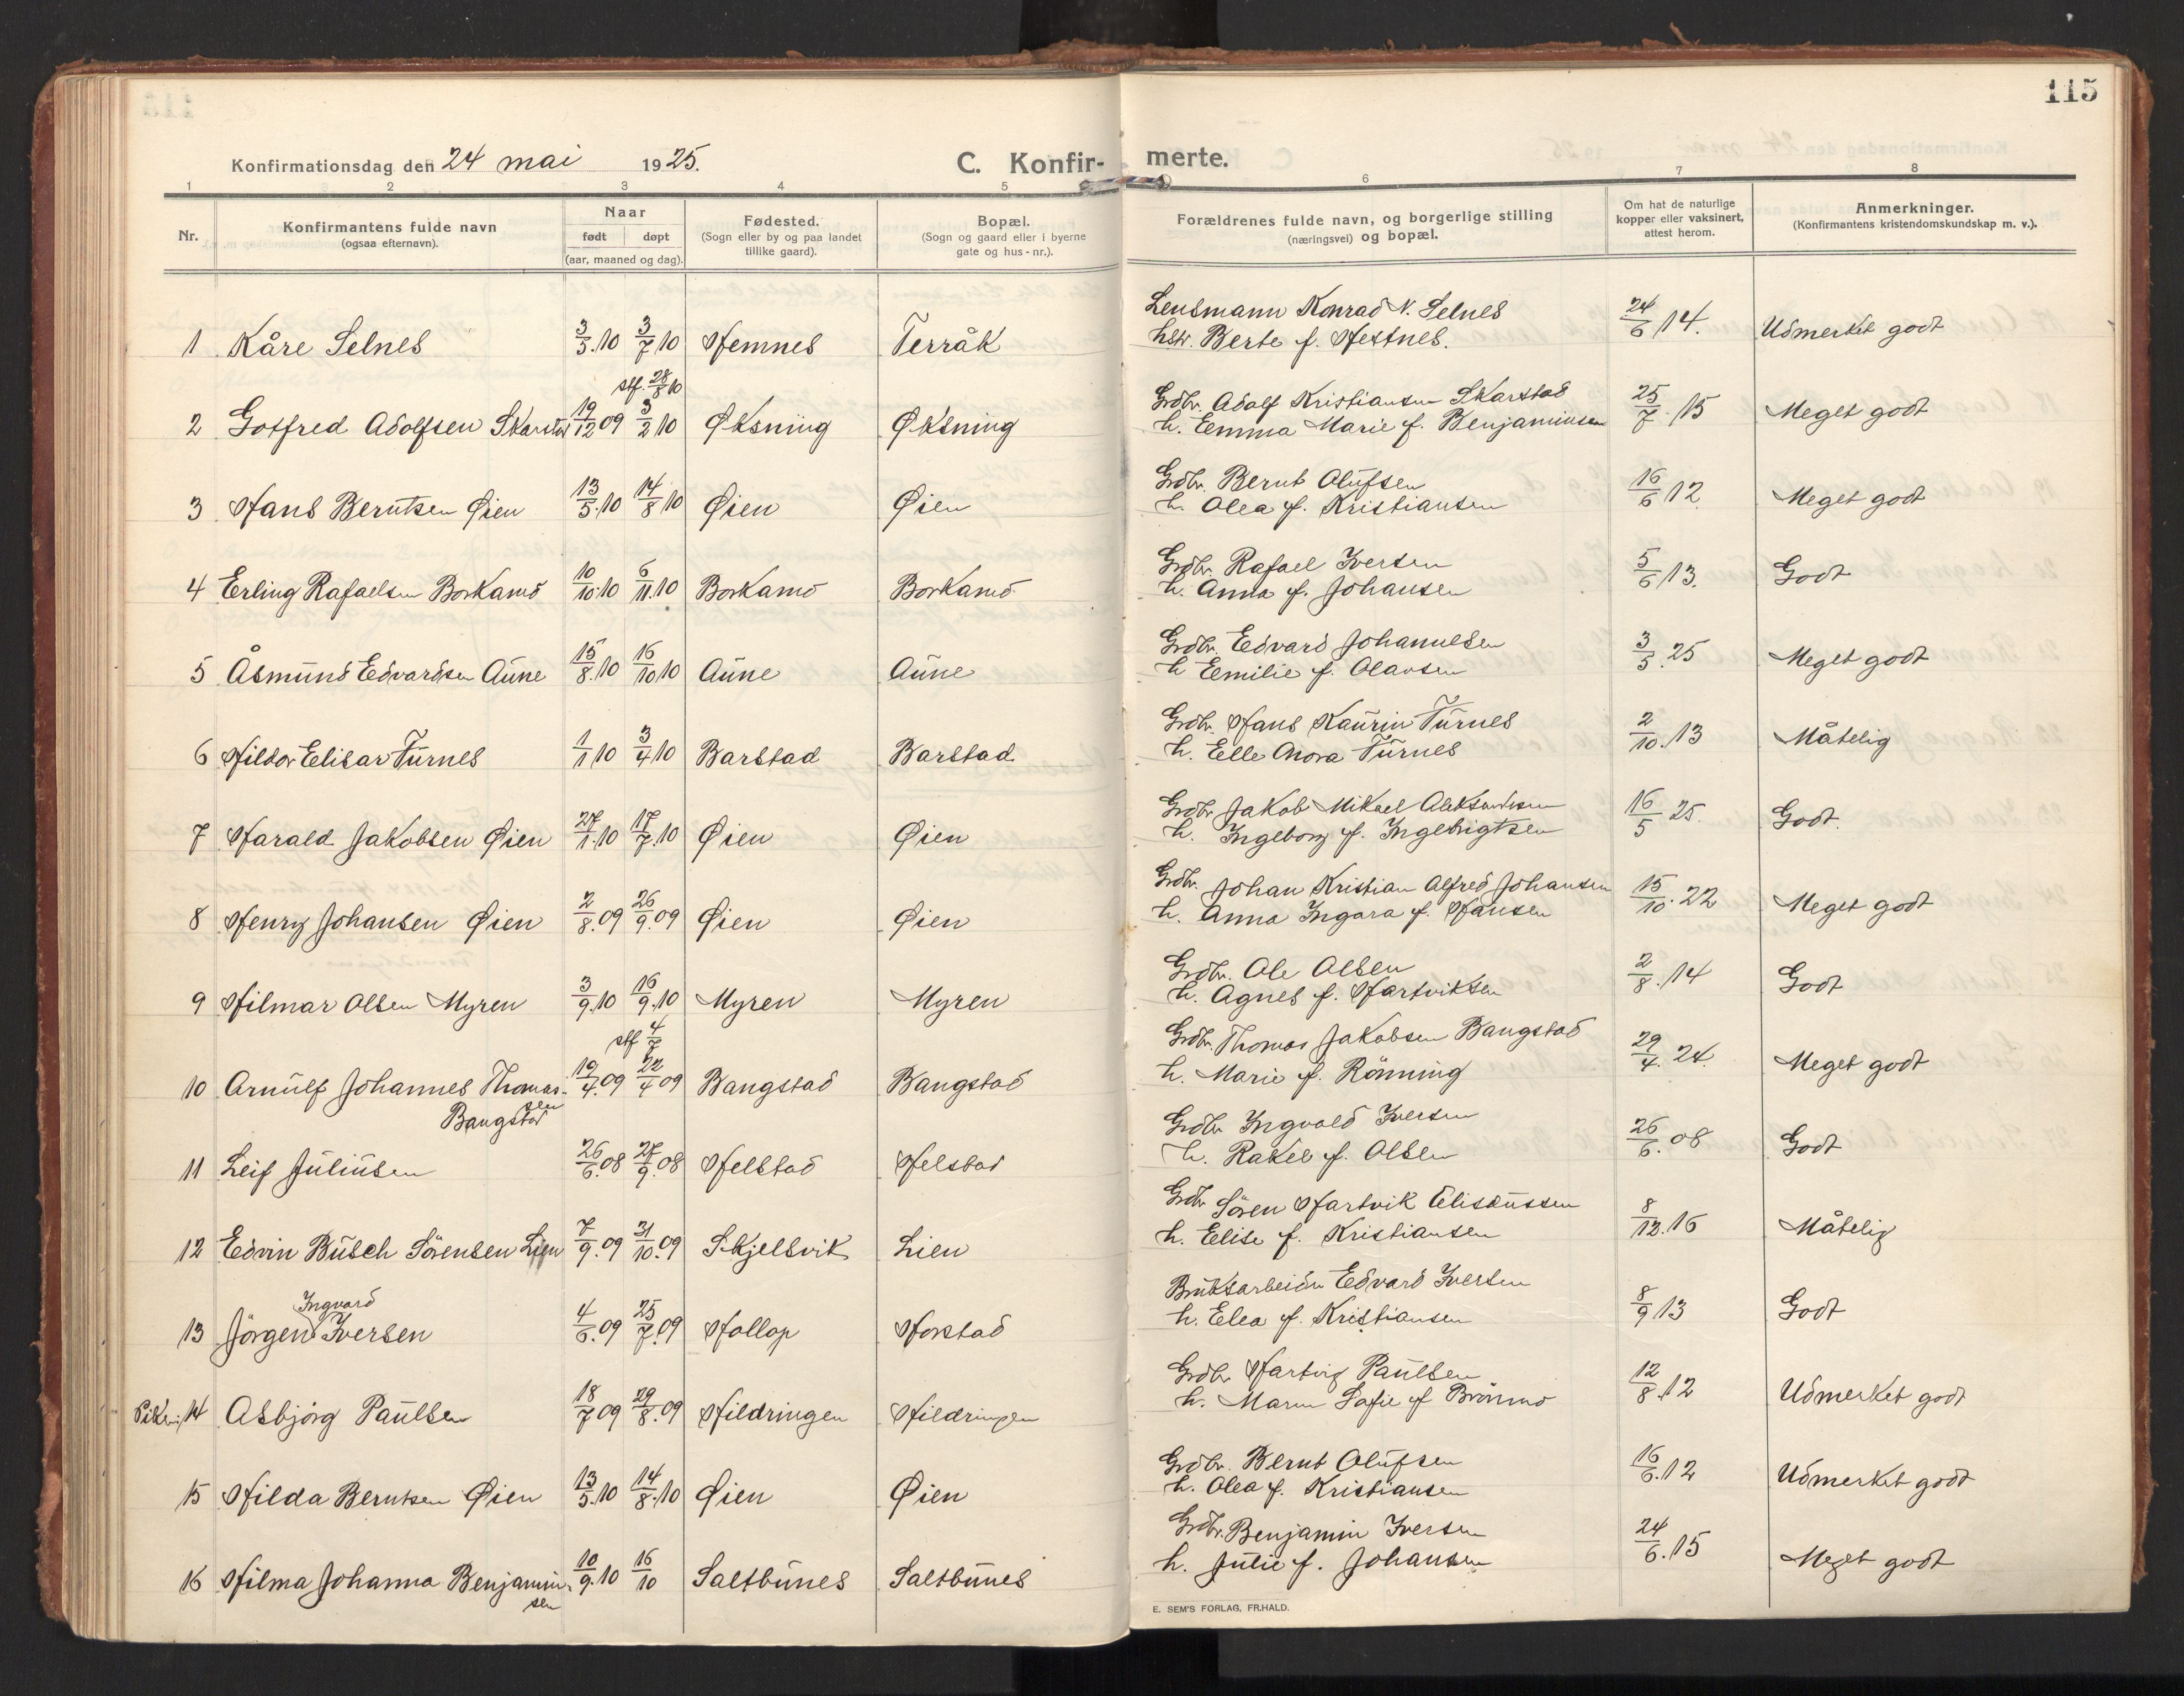 115
Konfirmationsdag den 24 mai 1925.
C. Konfir- merte.
1 2 3 4 5 6 7 8
Nr. Konfirmantens fulde navn (ogsaa efternavn). Naar født døpt (aar, maaned og dag). Fødested. (Sogn eller by og paa landet tillike gaard). Bopæl. (Sogn og gaard eller i byerne gate og hus-nr.). Forældrenes fulde navn, og borgerlige stilling (næringsvei) og bopæl. Om hat de naturlige kopper eller vaksinert, attest herom. Anmerkninger. (Konfirmantens kristendomskundskap m. v.).
1 Kåre Selnes 3/3.10 3/7 10 Hemnes Terråk Lensmann Konrad N. Selnes
hstr. Berte f. Hestnes. 24/6 14. Udmerket godt
stf. 28/8 10
2 Gotfred Adolfsen Skarstad 19/12 09 3/2 10 Øksning Øksning Grdbr. Adolf Kristiansen Skarstad
h. Emma Marie f. Benjaminsen 25/7 15 Meget godt
3 Hans Berntsen Øien 13/5.10 14/8 10 Øien Øien Grdbr. Bernt Olufsen
h. Olea f. Kristiansen 16/6 12 Meget godt
4 Erling Rafaelsen Borkamo 10/10.10 6/11.10 Borkamo Borkamo Grdbr. Rafael Iversen
h. Anna f. Johansen 5/6 13. Godt
5 Åsmund Edvardsen Aune 15/8.10 16/10 10 Aune Aune Grdbr. Edvard Johannessen
h Emilie f. Olavsen 3/5.25 Meget godt
6 Hildor Elisar Turnes 1/1 10 3/4 10 Barstad Barstad Grdbr. Hans Kaurin Turnes
h. Elle Nora Turnes 2/10.13 Måtelig
7 Harald Jakobsen Øien 27/1.10 17/7.10 Øien Øien Grdbr Jakob Mikael Aleksandersen
h. Ingeborg f. Ingebrigtsen 16/5 25. Godt.
8 Henry Johansen Øien 2/8.09 26/9.09 Øien Øien Grdbr. Johan Kristian Alfred Johansen
h. Anna Ingara f. Hansen 15/10.22 Meget godt
9 Hilmar Olsen Myren 3/9.10 16/9.10 Myren Myren Grdbr. Ole Olsen
h. Agnes f. Hartviksen 2/8.14 Godt
stf 4/7
10 Arnulf Johannes Thomas- 19/4.09 22/4 09 Bangstad Bangstad Grdbr. Thomas Jakobsen Bangstad
sen
Bangstad h. Marie f. Rönning 29/4.24. Meget godt
11 Leif Juliussen 26/6.08 27/9.08 Helstad Helstad Grdbr Ingvald Iversen
h. Rakel f. Olsen 26/6.08 Godt
12 Edvin Busch Sörensen Lien 7/9.09 31/10.09 Skjelsvik Lien Grdbr Sören Hartvik Eliseussen
h. Elise f. Kristiansen 8/12.16 Måtelig
Ingvard
13 Jörgen Iversen 4/6.09 25/7.09 Hollop Horstad Bruksarbeider Edvard Iversen
h. Elea f. Kristiansen 8/9 13 Godt
Piker: 14 Asbjörg Paulsen 18/7 09 29/8.09 Hildringen Hildringen Grdbr Hartvig Paulsen
h. Maren Sofie f Brönmo 12/8.12 Udmerket godt
15 Hilda Berntsen Øien 13/5.10 14/8.10 Øien Øien Grdbr. Bernt Olufsen
h. Olea f. Kristiansen 16/6.12 Udmerket godt
16 Hilma Johanna Benjamin- 10/9.10 16/10 Saltbunes Saltbunes Grdbr. Benjamin Iversen
sen
h. Julie f. Johansen 24/6.15 Meget godt
E. SEM'S FORLAG, FR.HALD.